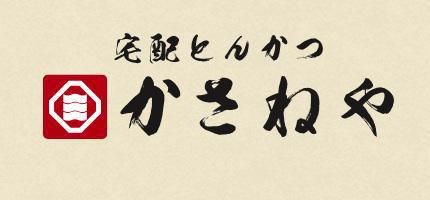 宅配とんかつ
かさねや